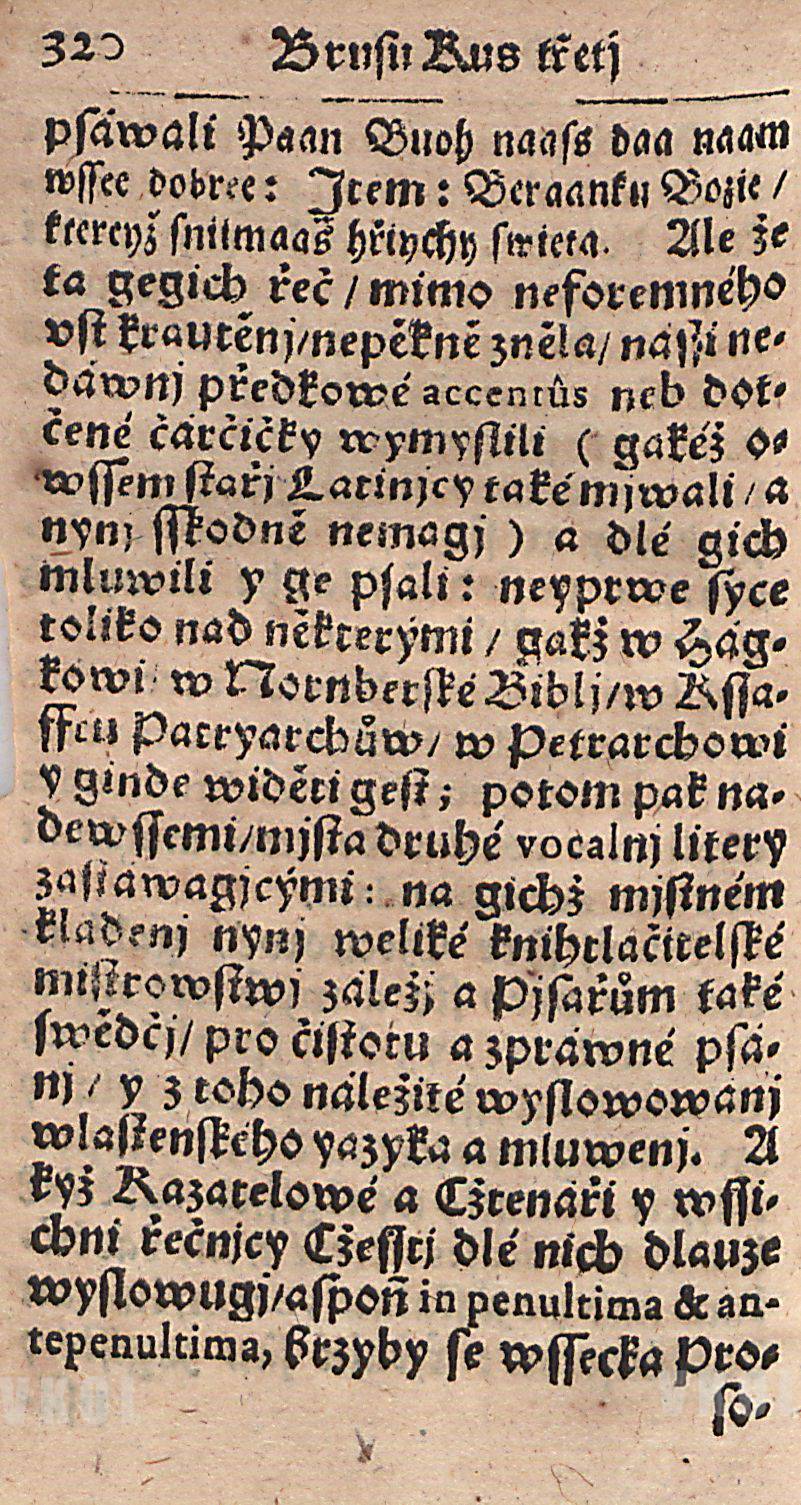 320 Brusu Kus třetj
psáwali Paan Buoh naass daa naam
wssee dobree: Jtem: Beraanku Bozie /
ktereyž snitmaaš hřiychy swieta. Ale že
ta gegich řeč / mimo neforemného
vst krautěnj / nepěkně zněla / nássi ne-
dáwnj předkowé accentûs neb dot-
čené čárčičky wymyslili ( gakéž o-
wssem stařj Latinjcy také mjwali / a
nynj sskodně nemagj ) a dlé gich
mluwili y ge psali: neyprwe syce
toliko nad některými / gakž w Hág-
kowi w Nornberské Biblj / w Kssa-
ffcu Patryarchůw / w Petrarchowi
y ginde widěti gest; potom pak na-
dewssemi / mjsta druhé vocalnj litery
zastáwagjcými: na gichž mjstném
kladenj nynj weliké knihtlačitelské
mistrowstwj záležj a Pjsařům také
swědčj / pro čistotu a zpráwné psá-
nj / y z toho náležité wyslowowánj
wlastenského yazyka a mluwenj. A
kyž Kazatelowé a Cžtenáři y wssi-
chni řečnjcy Cžesstj dlé nich dlauze
wyslowugj / aspoň in penultima & an-
tepenultima, krzyby se wssecka Pro-
so-